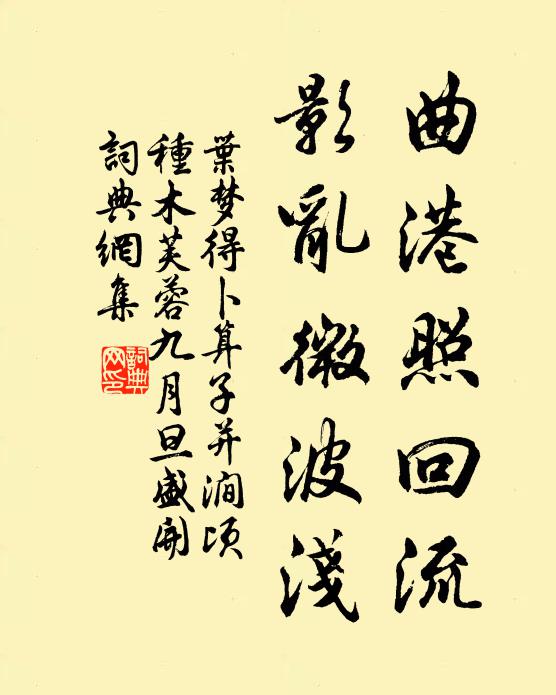 曲港照回流
影亂微波淺
葉梦得卜算子并澗頃
種木芙蓉九月旦盛開
詞典網集
詞典网印